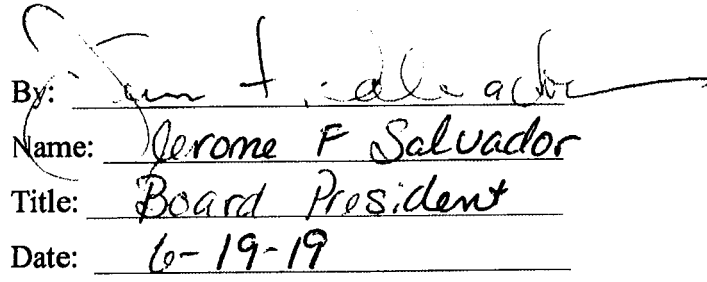 By:
Name: Jerome F Salvador
Title: Board President
Date: 6-19-19